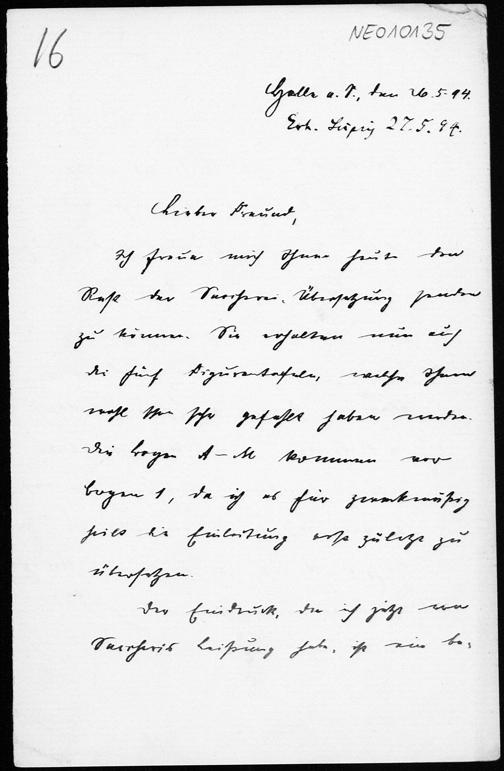 16
NEO10135
Halle a. S., den 26.5.94.
Erh. Leipzig 27.5.94.
Lieber Freund,
Ich freue mich Ihnen heute den
Rest der Saccheri-Übersetzung senden
zu können. Sie erhalten nun auch
die fünf Figurentafeln, welche Ihnen
wohl schon sehr gefehlt haben werden.
Die Bogen A–M kommen vor
Bogen 1, da ich es für zweckmäßig
hielt die Einleitung erst zuletzt zu
übersetzen.
Der Eindruck, den ich jetzt von
Saccheris Leistung habe, ist ein be-